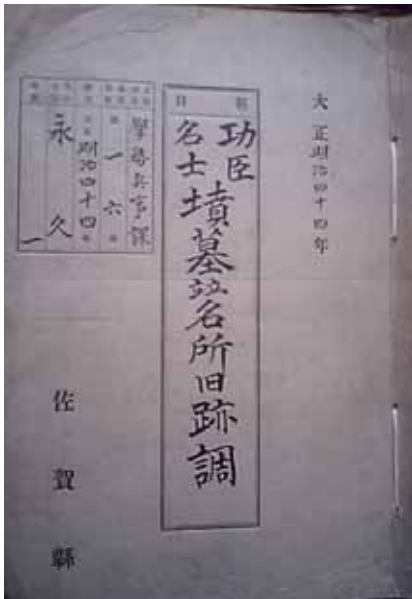 大正明治四十四年
題目
功臣
名士
墳墓並名所旧跡調
學務兵事課
第一六号
明治四十四年
永久
一
佐賀縣